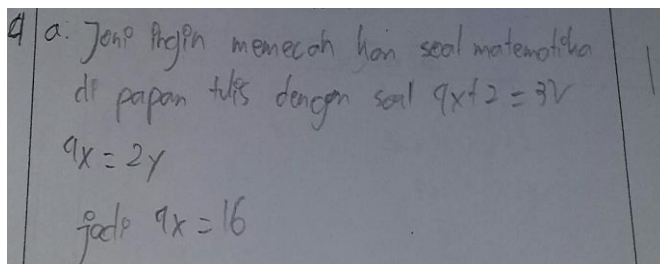 4 a. Joni ingin memecah kan soal matematika
di papan tulis dengan soal 9x+2 = 3V
9x = 2y
jadi 9x = 16